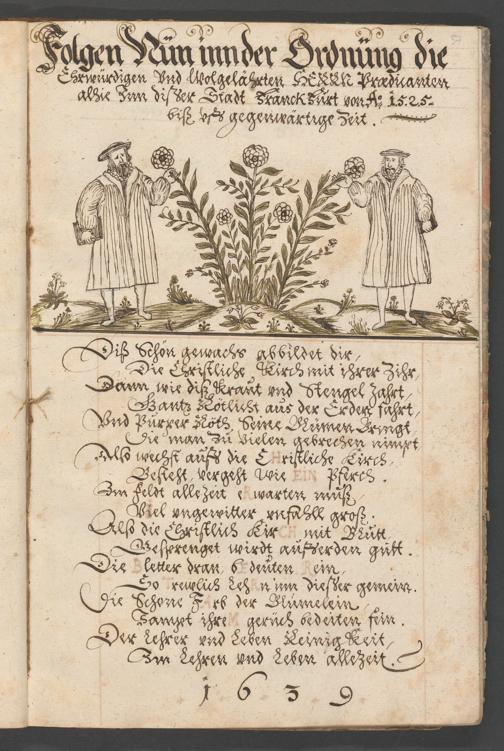 Folgen Nün inn der Ordnüng die
Ehrwürdigen Vnd Wolgelährten HERRN Prædicanten
alhie Inn dißer Stadt Franckfurt von Aº 1525
biß vfs gegenwärtige Zeit.
Diß Schön gewachs abbildet dir,
Die Christliche Kirch mit ihrer Zihr,
Dann wie diß Kraut vnd Stengel Zahrt,
Gantz Rötlicht aus der Erden fahrt,
Vnd Purper Roth, Seine Blumen bringt
Die man zu vielen gebrechen nimpt
Also wechst aufs die Christliche Kirch,
Besteht, vergeht wie EIN Pferch.
Im feldt allezeit erwarten muß,
Viel ungewitter vnfahll groß.
Also die Christlich KirCH mit Blutt,
Besprenget wirdt auf Erden gutt.
Die Bletter dran bedeuten Rein,
So Trewlich Lehrn inn dießer gemein.
Die Schöne Farb der Blümelein
Sampt ihreM gerüch bedeiten fein.
Der Lehrer vnd Leben Reinigkeit,
Im Lehren vnd Leben allezeit.
1639